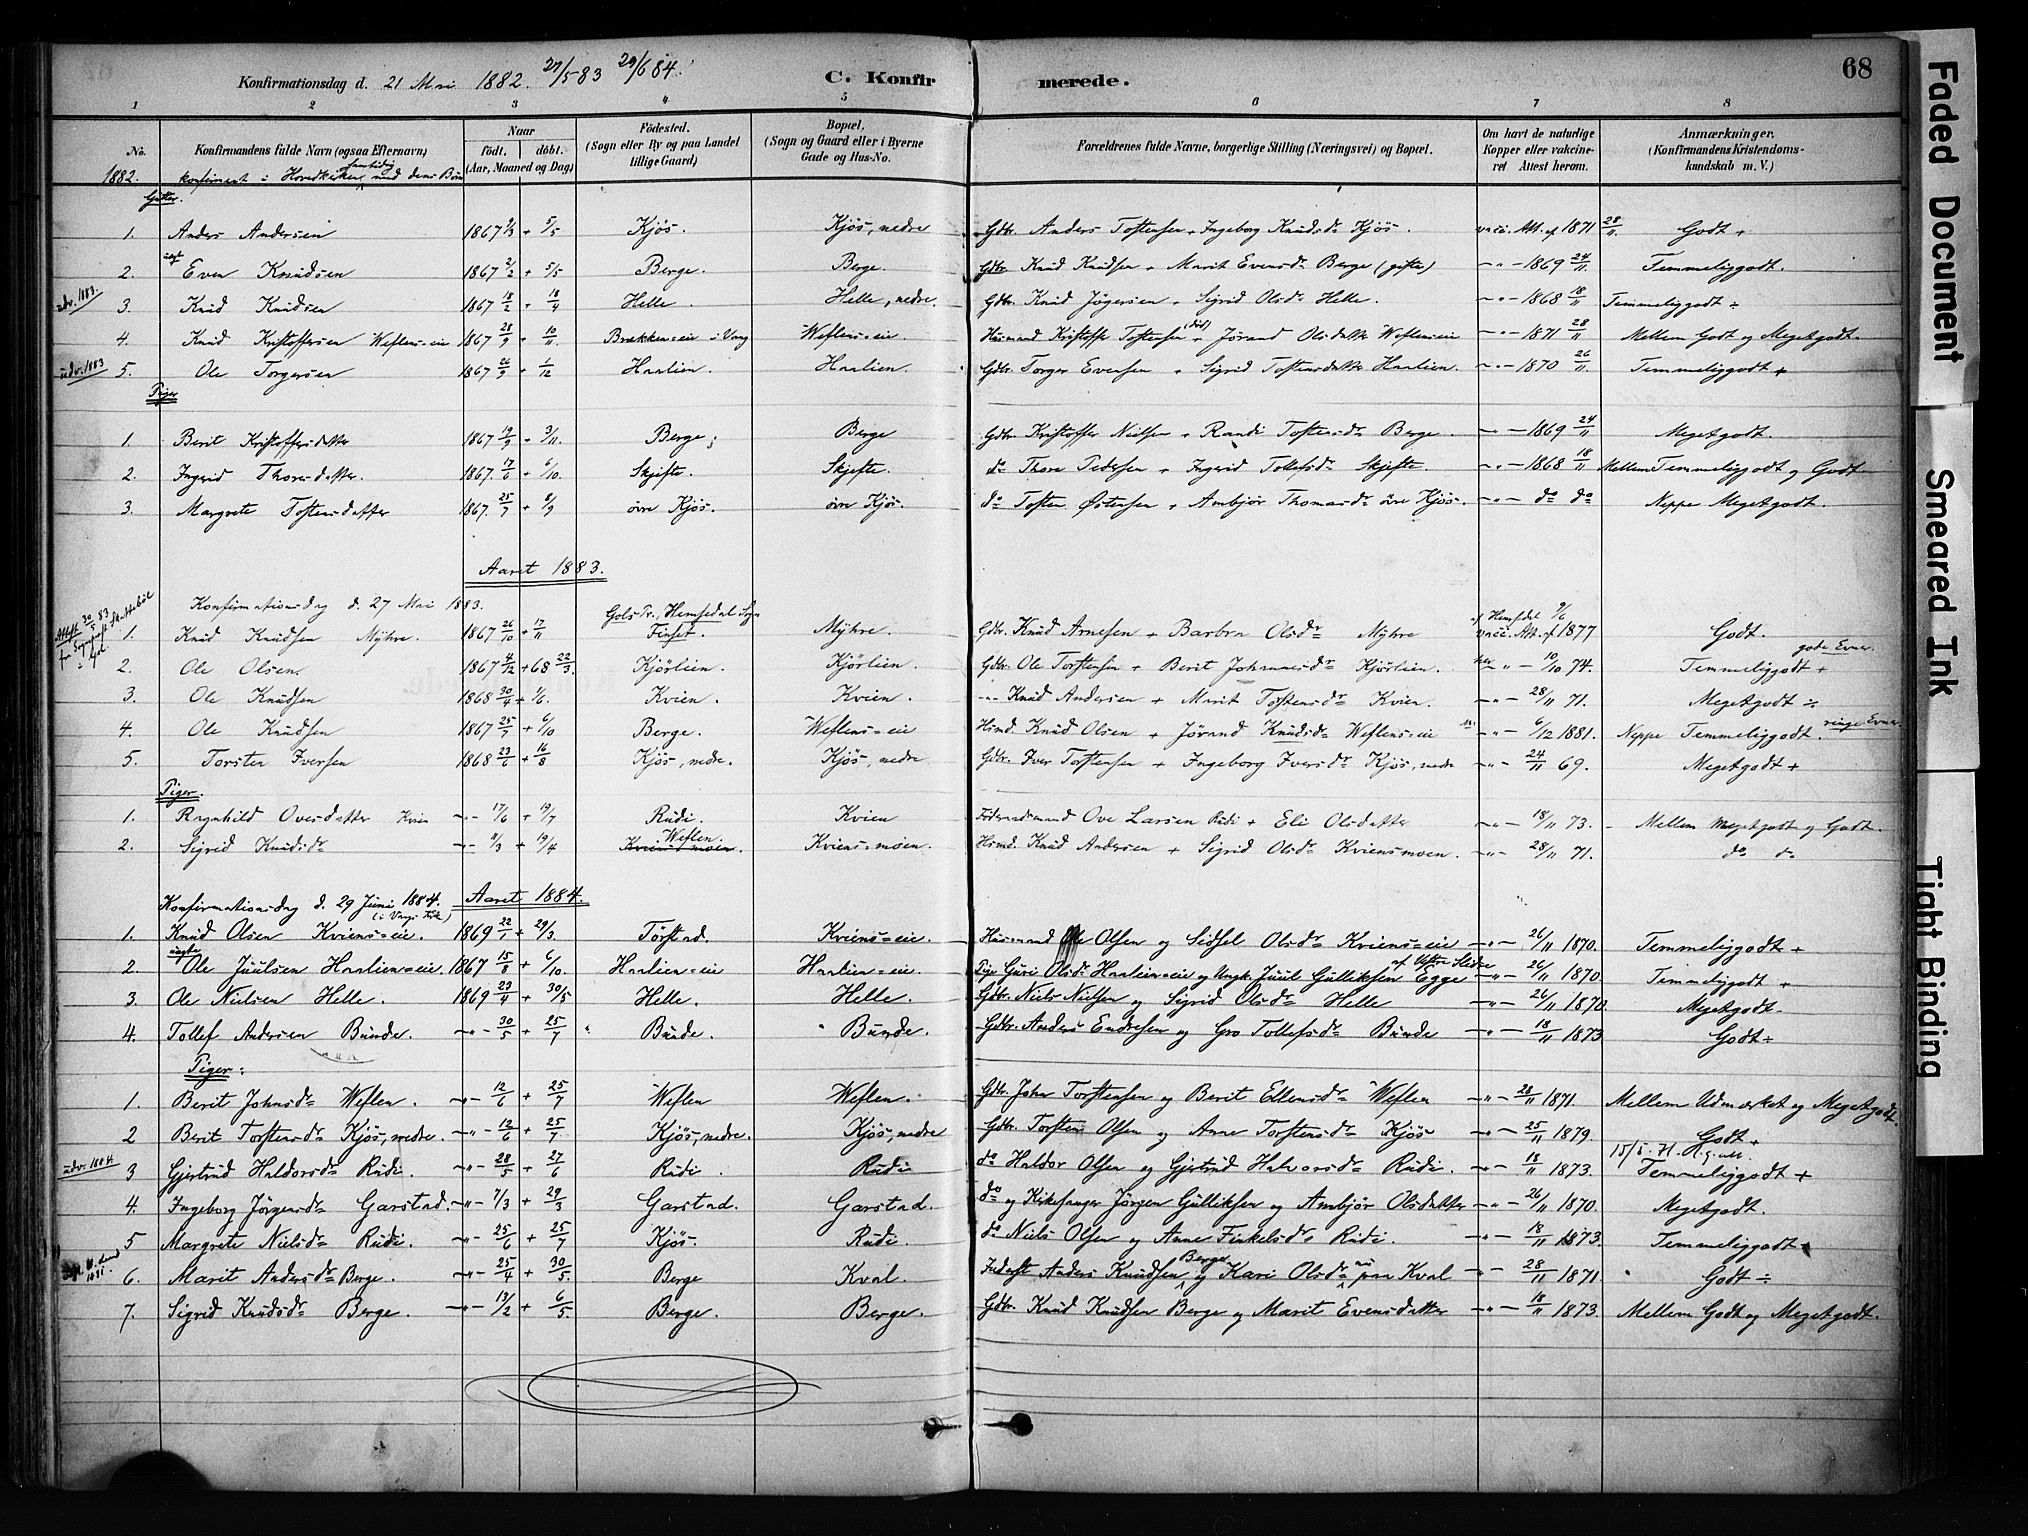 68
Konfirmationsdag d. 21 Mai 1882. 27/5 83 29/6 84. C. Konfirmerede.
1 2 3 4 5 6 7 8
No. Konfirmandens fulde Navn (ogsaa Efternavn) Naar födt. döbt. (Aar, Maaned og Dag) Födested. (Sogn eller By og paa Landet tillige Gaard) Bopæl. (Sogn og Gaard eller i Byerne Gade og Hus-No. Forældrenes fulde Navne, borgerlige Stilling (Næringsvei) og Bopæl. Om havt de naturlige Kopper eller vakcineret Attest herom. Anmærkninger. (Konfirmandens Kristendomskundskab m. V.)
1882. konfirmert i Hovedkirken samtidig med dens Börn
Gutter.
1. Anders Andersen 1867 2/3 + 5/5 Kjös. Kjös, nedre Gdbr. Anders Tostensen + Ingeborg Knudsdr Kjös. vacc. Att. af 1871 28/11 Godt +
2. Even Knudsen 1867 2/2 + 5/5 Berge. Berge. Gdbr. Knud Knudsen + Marit Evensdr Berge (gifte) -"- 1869 24/11 Temmeliggodt.
udv. 1883. 3. Knud Knudsen 1867 18/2 + 18/4 Helle. Helle, nedre. Gdbr. Knud Jögersen + Sigrid Olsdr Helle. -"- 1868 18/11 Temmeliggodt ÷
4. Knud Kristoffersen Weflens=eie 1867 28/9 + 10/11 Brækkens=eie i Vang Weflens=eie. Husmand Kristoffer Tostensen (död) + Jörand Olsdatter Weflenseie -"- 1871 28/11 Mellem Godt og Megetgodt.
udv. 1883 5. Ole Torgersen 1867 26/9 + 1/12 Haalien. Haalien. Gdbr. Torger Evensen + Sigrid Tostensdatter Haalien. -"- 1870 26/11 Temmeliggodt +
Piger
1. Berit Kristoffersdatter 1867 19/9 + 3/11 Berge; Berge Gdbr. Kristoffer Nielsen + Randi Tostensdr Berge. -"- 1869 24/11 Megetgodt.
2. Ingrid Thoresdatter. 1867. 17/6 + 6/10. Skjefte. Skjefte. do Thore Pedersen + Ingerid Tollefsdr Skjefte -"- 1868 18/11 Mellem Temmeliggodt og Godt
3. Margrete Tostensdatter 1867. 25/7 + 8/9 övre Kjös. övre Kjös. do Tosten Östensen + Ambjör Thomasdr övre Kjös. -"- do do Neppe Megetgodt.
Aaret 1883.
Konfirmationsdag d. 27 Mai 1883.
1. Knud Knudsen Myhre. 1867 26/10 + 17/11 Gols Pr., Hemsedal Sogn Finset. Myhre. Gdbr. Knud Arnesen + Barbra Olsdr Myhre af Hemsedal 9/6 vacc. Att. af 1877 Godt.
2. Ole Olsen. 1867 4/12 + 68 22/3. Kjörlien. Kjörlien. Gdbr. Ole Torstensen + Berit Johannesdr Kjörlien. her " - 10/10 74. Temmeliggodt + gode Evner.
3. Ole Knudsen 1868 30/4 + 1/6. Kvien. Kvien. -"- Knud Andersen + Marit Torstensdr Kvien. -"- 28/11 71. Megetgodt ÷
4. Ole Knudsen 1867 25/7 + 6/10 Berge. Weflens=eie Husmd. Knud Olsen + Jörand Knudsdr Weflens=eie -"- 6/12 1881. Neppe Temmeliggodt. ringe Evner.
5. Torsten Iversen 1868 23/6 + 16/8 Kjös, nedre. Kjös, nedre Gdbr. Iver Torstensen + Ingeborg Iversdr Kjös, nedre -"- 24/11 69. Megetgodt +
Piger.
1. Ragnhild Ovesdatter Kvien -"- 17/6 + 19/7 Rudi. Kvien Föderaadsmand Ove Larsen Rudi + Eli Olsdatter -"- 18/11 73. Mellem Megetgodt og Godt.
2. Sigrid Knudsdr -"- 8/3 + 19/4 Kviensmoen. Weflen Kviens=moen. Husmd. Knud Andersen + Sigrid Olsdr Kviensmoen. -"- 28/11 71. do do
Aaret 1884.
Konfirmationsdag d. 29 Juni 1884. (i Vangs Kirke)
1. Knud Olsen Kviens=eie. 1869 22/1 + 29/3. Törstad. Kviens=eie. Husmand Ole Olsen og Sidsel Olsdr Kviens=eie -"- 26/11 1870. Temmeliggodt +
2. uægte Ole Juulsen Haalien=eie. 1867 15/8 + 6/10. Haalien=eie Haalien=eie. Pige Guri Olsdr Haalien=eie og Ungk. Juul Gulliksen Egge af Vestre Slidre -"- 26/11 1870. Temmeligodt +
3. Ole Nielsen Helle. 1869 29/4 + 30/5 Helle. Helle. Gdbr. Niels Nielsen og Sigrid Olsdr Helle -"- 26/11 1870. Megetgodt.
4. Tollef Andersen Bunde. -"- 30/5 + 25/7 Bunde. Bunde. Gdbr. Anders Endresen og Gro Tollefsdr Bunde -"- 18/11 1873 Godt ÷
Piger:
1. Berit Johnsdr Weflen. -"- 12/6 + 25/7 Weflen Weflen. Gdbr. John Torstensen og Berit Ellensdr Weflen -"- 28/11 1871. Mellem Udmærket og Megetgodt.
2 Berit Torstensdr Kjös, nedre. -"- 12/6 + 25/7. Kjös, nedre. Kjös, nedre Gdbr. Torsten Olsen og Anne Torstensdr Kjös -"- 25/11 1879. Godt +
udv. 1884 3 Gjertrud Haldorsdr Rudi. -"- 28/5 + 27/6 Rudi. Rudi do Haldor Olsen og Gjertrud Halvorsdr Rudi. -"- 18/11 1873. Temmeliggodt +
4. Ingeborg Jörgensdr Garstad. -"- 7/3 + 29/3 Garstad. Garstad. do og Kirkesanger Jörgen Gulliksen og Ambjör Olsdatter -"- 26/11 1870. Megetgodt.
5 Margrete Nielsdr Rudi. -"- 25/6 + 25/7 Kjös. Rudi do Niels Olsen og Anne Finkelsdr Rudi. -"- 18/11 1873. Temmeliggodt
6. Marit Andersdr Berge. -"- 25/4 + 30/5. Berge Kval. Inderst Anders Knudsen Berge og Kari Olsdr nu paa Kval -"- 28/11 1871. Godt ÷
7. Sigrid Knudsdr Berge. -"- 13/2 + 6/5. Berge. Berge. Gdbr. Knud Knudsen Berge og Marit Evensdatter -"- 18/11 1873. Mellem Godt og Megetgodt.
Faded Document
Smeared Ink
Tight Binding